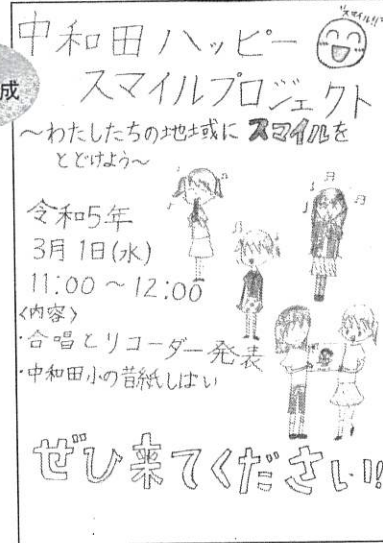 "スマイル!!"
中和田ハッピー
スマイルプロジェクト
成
～わたしたちの地域にスマイルを
とどけよう～
令和5年
3月1日(水)
11:00～12:00
<内容>
・合唱とリコーダー発表
・中和田小の昔紙しばい
ぜひ来てください!!